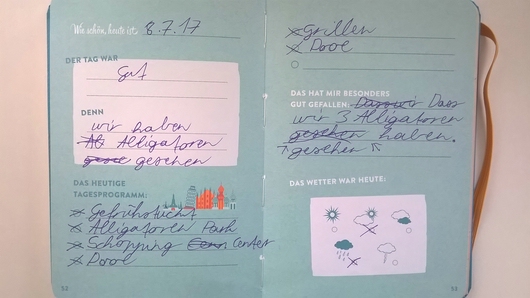 Wie schön, heute ist: 8.7.17
DER TAG WAR
gut
DENN
wir haben
Al Alligatoren
gesehen
DAS HEUTIGE
TAGESPROGRAMM:
gefrühstückt
Alligatoren Park
Schopping Center
Pool
52
Grillen
Pool
DAS HAT MIR BESONDERS
GUT GEFALLEN: Dass
wir 3 Alligatoren
gesehen haben.
gesehen
DAS WETTER WAR HEUTE:
53